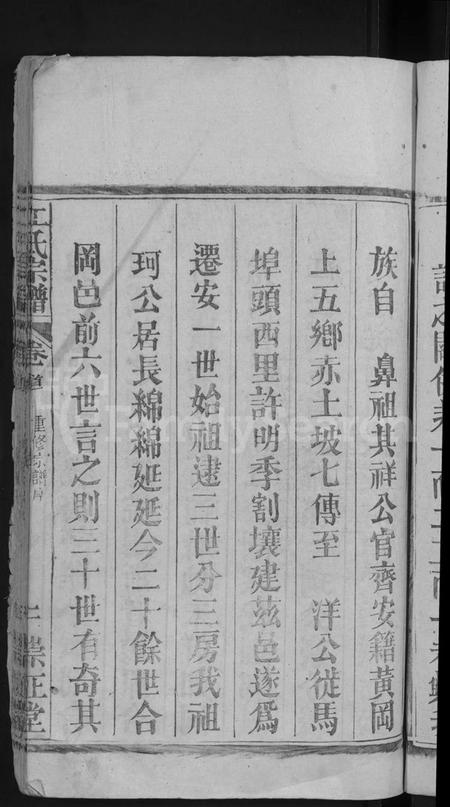 族自 鼻祖其祥公官齊安籍黃岡
上五鄉赤土坡七傳至 洋公徙馬
埠頭西里許明季割壤建茲邑遂為
遷安一世始祖逮三世分三房我祖
珂公居長綿綿延延今二十餘世合
岡邑前六世言之則三十世有奇其
氏宗譜
卷首
重修宗譜序
崇正堂